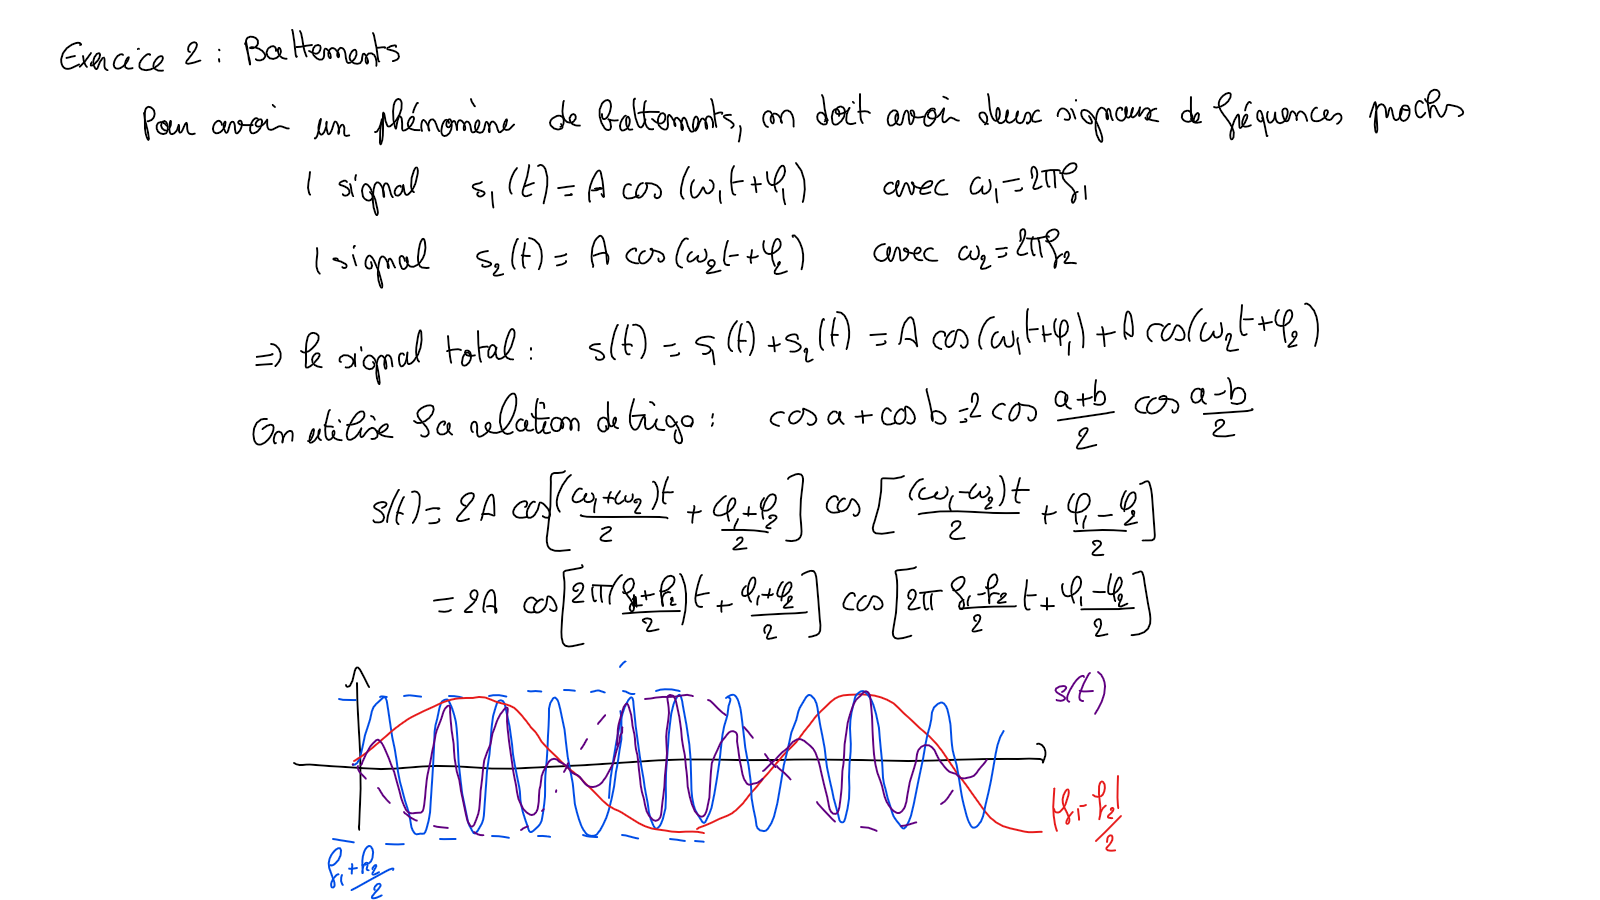 Exercice 2 : Battements
Pour avoir un phénomène de battements, on doit avoir deux signaux de fréquences proches
1 signal s₁(t) = A cos (ω₁t+φ₁) avec ω₁ = 2πf₁
1 signal s₂(t) = A cos(ω₂t+φ₂) avec ω₂ = 2πf₂
⇒ le signal total : s(t) = s₁(t) + s₂(t) = A cos(ω₁t+φ₁) + A cos(ω₂t+φ₂)
On utilise la relation de trigo : cos a + cos b = 2 cos (a+b)/2 cos (a-b)/2
s(t) = 2A cos[(ω₁+ω₂)t/2 + (φ₁+φ₂)/2] cos[(ω₁-ω₂)t/2 + (φ₁-φ₂)/2]
= 2A cos[2π((f₁+f₂)/2)t + (φ₁+φ₂)/2] cos[2π (f₁-f₂)/2 t + (φ₁-φ₂)/2]
s(t)
|f₁-f₂|/2
f₁+f₂/2